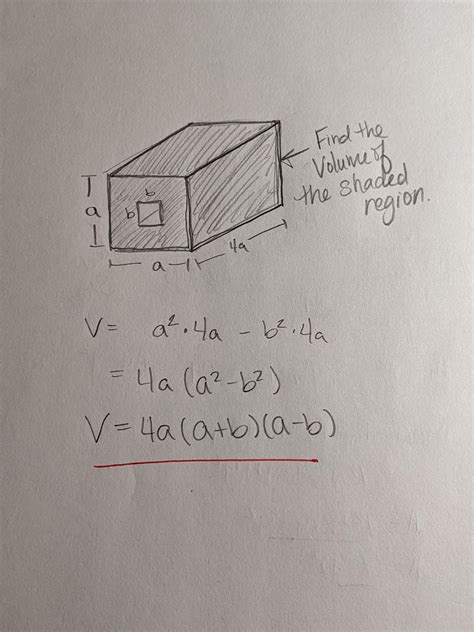 Find the
Volume of
the shaded
region.
b
b
a
a
4a
V= a²·4a - b²·4a
= 4a(a²-b²)
V=4a(a+b)(a-b)